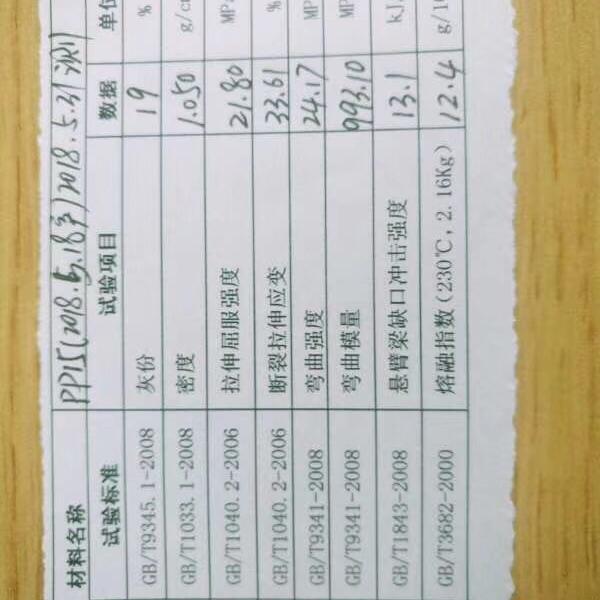 材料名称 PP15(2018.5.18字)2018.5.31测
试验标准 试验项目 数据 单位
GB/T9345.1-2008 灰份 19 %
GB/T1033.1-2008 密度 1.050 g/c
GB/T1040.2-2006 拉伸屈服强度 21.80 MP
GB/T1040.2-2006 断裂拉伸应变 33.61 %
GB/T9341-2008 弯曲强度 24.17 MP
GB/T9341-2008 弯曲模量 993.10 MP
GB/T1843-2008 悬臂梁缺口冲击强度 13.1 kJ
GB/T3682-2000 熔融指数(230℃, 2.16Kg) 12.4 g/10